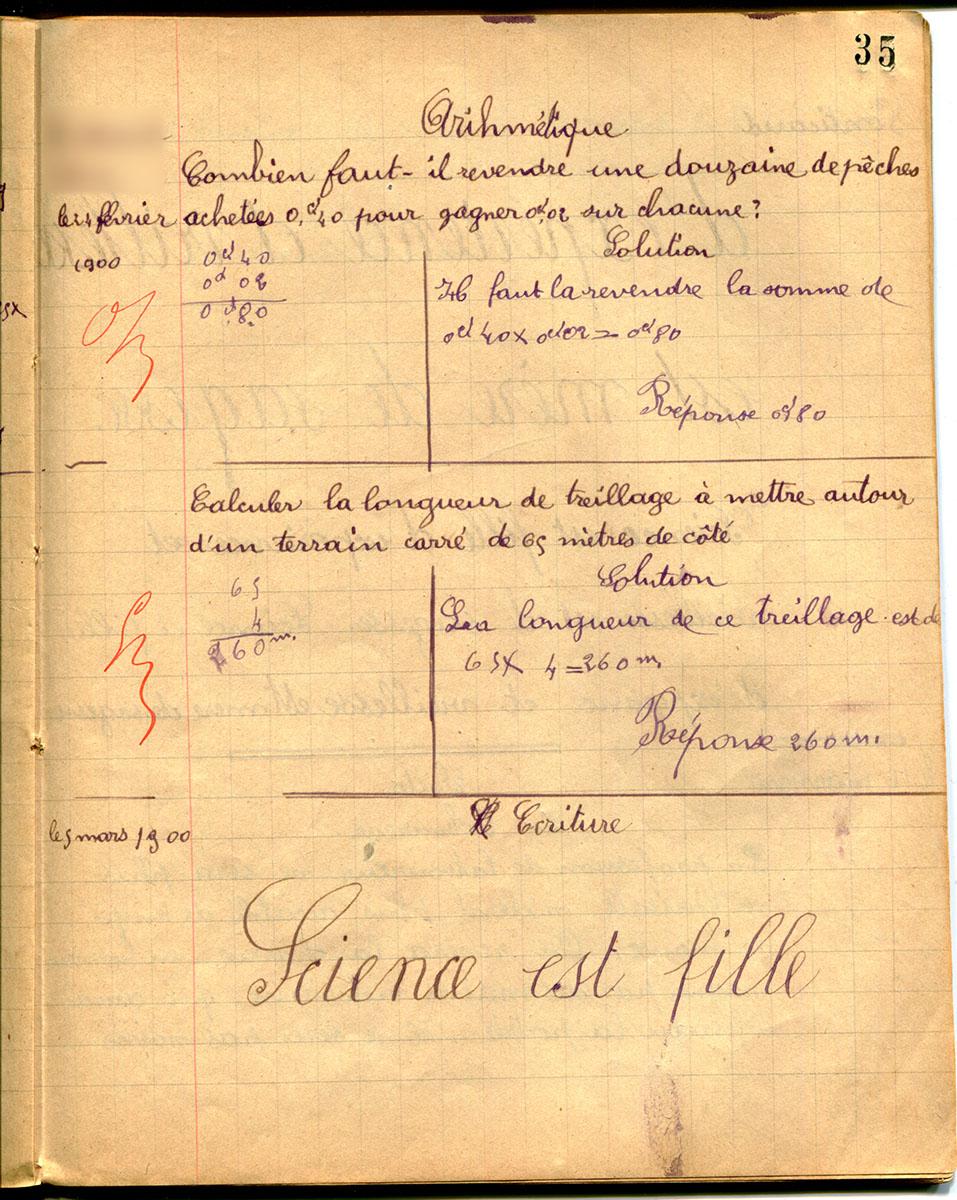 35
Arihmétique
Combien faut-il revendre une douzaine de pêches
le 24 février achetées 0,d40 pour gagner 0d,02 sur chacune?
1900
0d40
0d 02
0d80
Solution
faut la revendre la somme de
0d40 x 0d02 = 0d80
Réponse 0d80
Calculer la longueur de treillage à mettre autour
d'un terrain carré de 65 mètres de côté
65
4
260m.
Solution
La longueur de ce treillage est de
65 x 4 = 260 m.
Réponse 260 m.
le 5 mars 1900
Ecriture
Science est fille